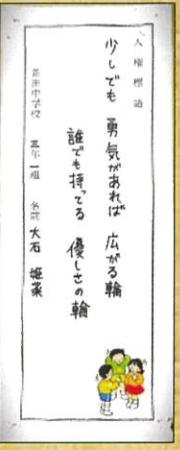 人権標語
少しでも 勇気があれば 広がる輪
誰でも持ってる 優しさの輪
中学校 三年一組 名前 大石 姫菜